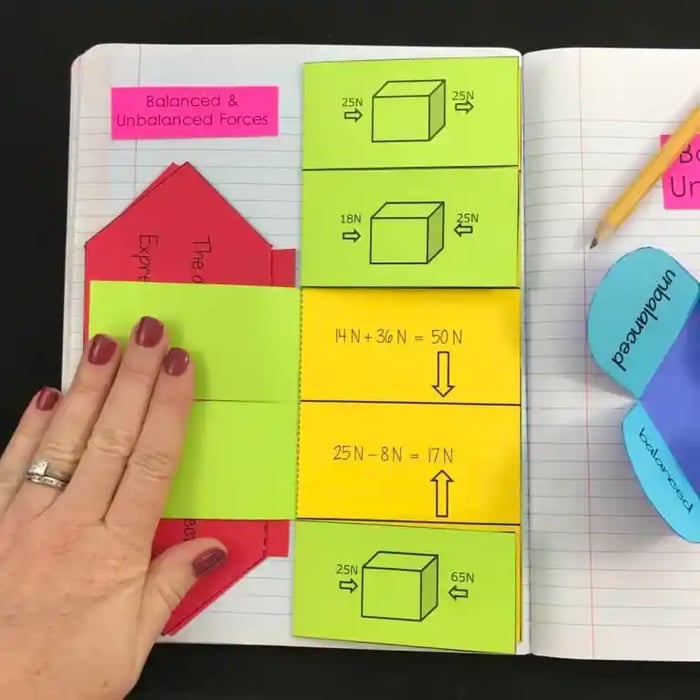 Balanced &
Unbalanced Forces
25N 25N
18N 25N
14N + 36N = 50N
25N - 8N = 17N
25N 65N
The
unbalanced
balanced